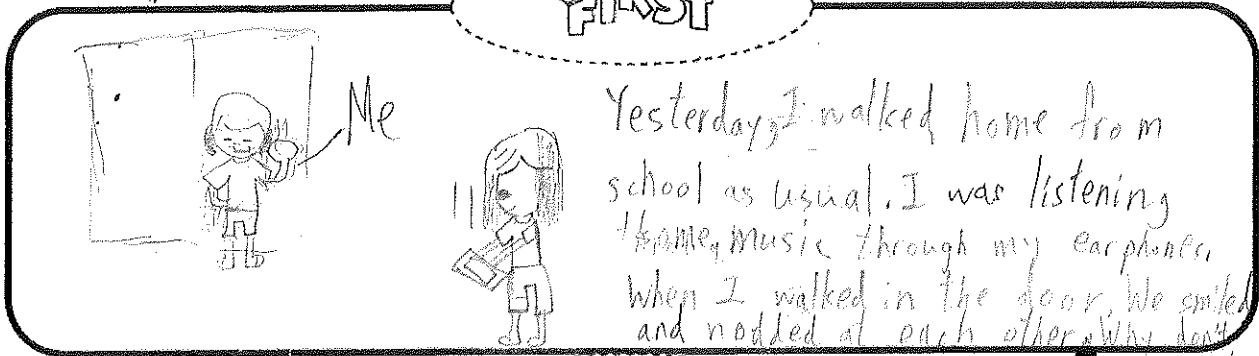 FIRST
Me
Yesterday, I walked home from
school as usual. I was listening
music through my earphones.
When I walked in the door, We smiled
and nodded at each other. Why don't